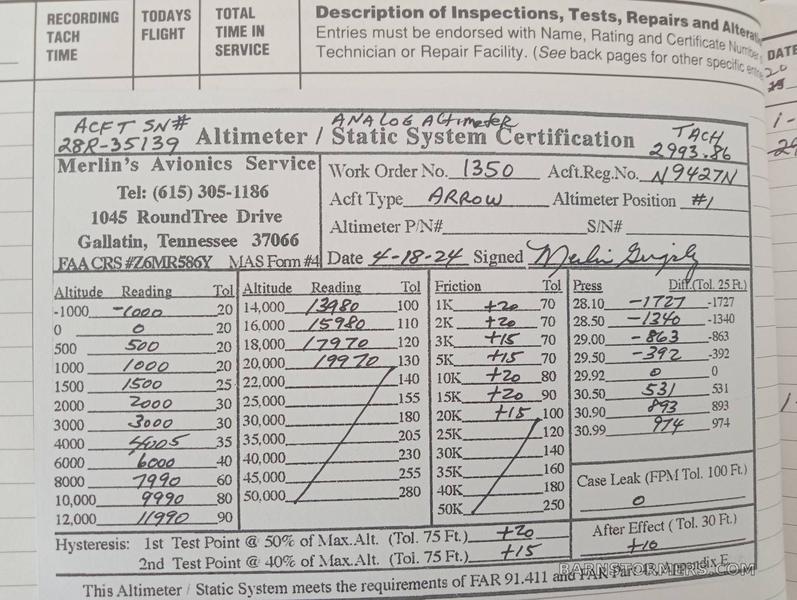 RECORDING TACH TIME
TODAYS FLIGHT
TOTAL TIME IN SERVICE
Description of Inspections, Tests, Repairs and Altera
Entries must be endorsed with Name, Rating and Certificate Number
Technician or Repair Facility. (See back pages for other specific entries
DATE
20
ACFT SN#
28R-35139
ANALOG Altimeter
Altimeter / Static System Certification
TACH
2993.86
Merlin's Avionics Service
Tel: (615) 305-1186
1045 RoundTree Drive
Gallatin, Tennessee 37066
FAA CRS #Z6MR586Y MAS Form #4
Work Order No. 1350 Acft.Reg.No. N9427N
Acft Type ARROW Altimeter Position #1
Altimeter P/N# S/N#
Date 4-18-24 Signed
Altitude Reading Tol
-1000 -1000 20
0 0 20
500 500 20
1000 1000 20
1500 1500 25
2000 2000 30
3000 3000 30
4000 4005 35
6000 6000 40
8000 7990 60
10,000 9990 80
12,000 11990 90
Altitude Reading Tol
14,000 13980 100
16,000 15980 110
18,000 17970 120
20,000 19970 130
22,000 140
25,000 155
30,000 180
35,000 205
40,000 230
45,000 255
50,000 280
Friction Tol
1K +20 70
2K +20 70
3K +15 70
5K +15 70
10K +20 80
15K +20 90
20K +15 100
25K 120
30K 140
35K 160
40K 180
50K 250
Press Diff.(Tol. 25 Ft.)
28.10 -1727 -1727
28.50 -1340 -1340
29.00 -863 -863
29.50 -392 -392
29.92 0 0
30.50 531 531
30.90 893 893
30.99 974 974
Case Leak (FPM Tol. 100 Ft.)
0
Hysteresis: 1st Test Point @ 50% of Max.Alt. (Tol. 75 Ft.) +20
2nd Test Point @ 40% of Max.Alt. (Tol. 75 Ft.) +15
After Effect ( Tol. 30 Ft.)
+10
This Altimeter / Static System meets the requirements of FAR 91.411 and FAR Part 43 Appendix E
BARNSTORMERS.COM